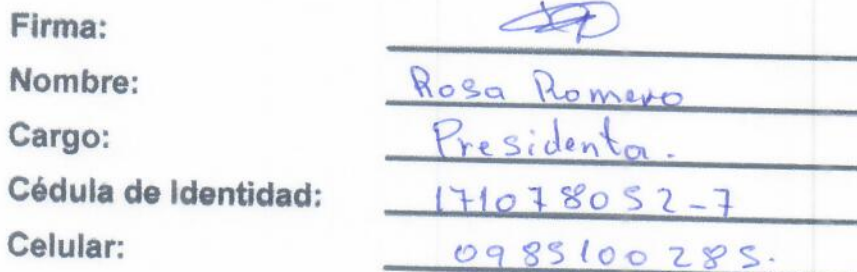 Firma:
Nombre: Rosa Romero
Cargo: Presidenta.
Cédula de Identidad: 171078052-7
Celular: 0985100285.